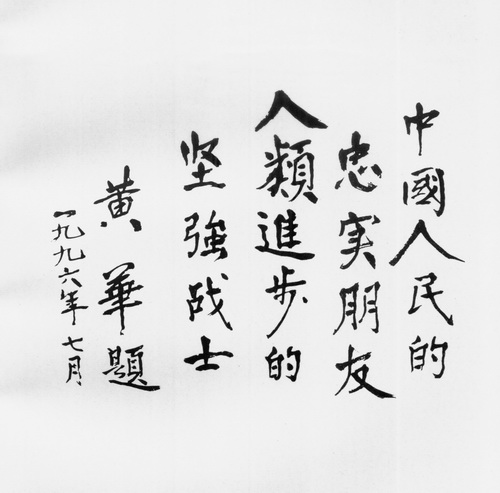 中國人民的
忠实朋友
人類進步的
坚強战士
黄華題
一九九六年七月